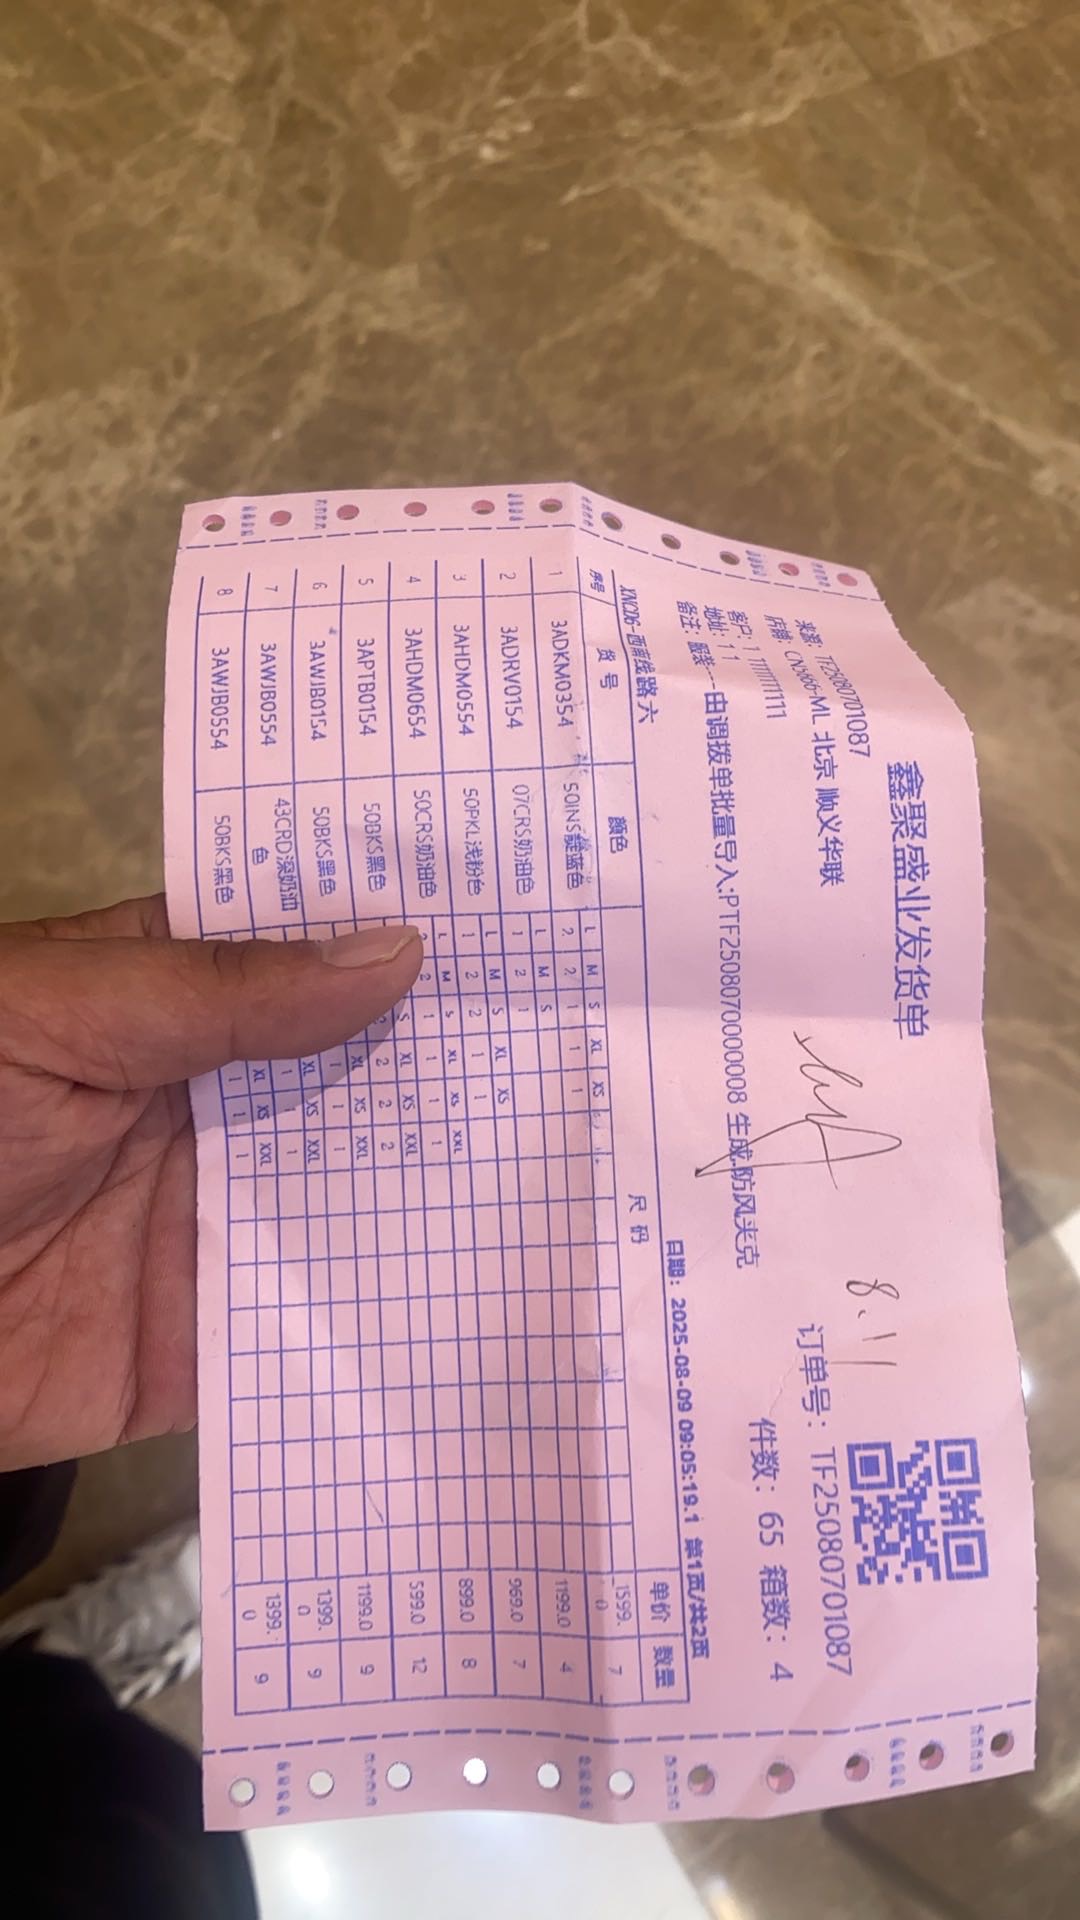 鑫聚盛业发货单
来源: TF25080701087
店铺: CN5666-ML 北京 顺义华联
8.11
订单号: TF25080701087
客户: 1 11111111111
件数: 65 箱数: 4
地址: 1 1
备注: 服装---由调拨单批量导入:PTF2508070000008 生成,防风夹克
XNCD6-西南线路六
日期: 2025-08-09 09:05:19.1 第1页/共2页
序号 货号 颜色 尺码 单价 数量
L M S XL XS
1 3ADKM0354 50INS靛蓝色 2 2 1 1 1 1599.0 7
L M S
2 3ADRV0154 07CRS奶油色 1 2 1 1199.0 4
L M S XL XS
3 3AHDM0554 50PKL浅粉色 1 2 2 1 1 969.0 7
L M S XL XS XXL
4 3AHDM0654 50CRS奶油色 2 1 1 1 1 899.0 8
S XL XS XXL
5 3APTB0154 50BKS黑色 2 2 2 2 599.0 12
XL XS XXL
6 3AWJB0154 50BKS黑色 1 1 1 1199.0 9
XL XS XXL
7 3AWJB0554 43CRD深奶油色 1 1 1 1399.0 9
XL XS XXL
8 3AWJB0554 50BKS黑色 1 1 1 1399.0 9